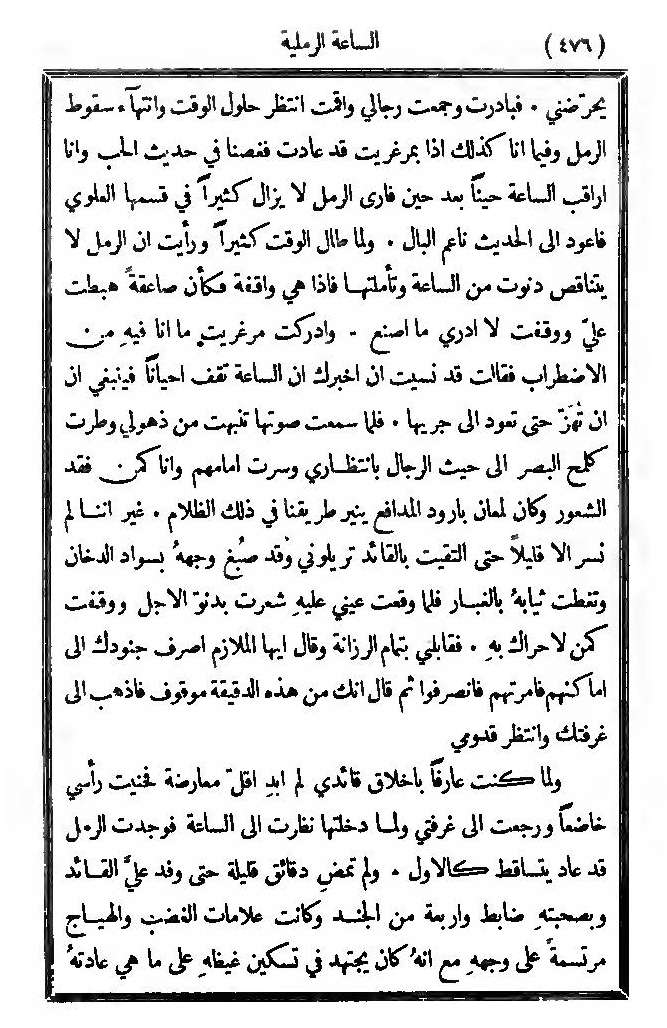 (٤٧٦)
الساعة الرملية
يحرّضني ٠ فبادرت وجمعت رجالي واقمت انتظر حلول الوقت وانتهآء سقوط
الرمل وفيما انا كذلك اذا بمرغريت قد عادت فغصنا في حديث الحب وانا
اراقب الساعة حيناً بعد حين فارى الرمل لا يزال كثيراً في قسمها العلوي
فاعود الى الحديث ناعم البال ٠ ولما طال الوقت كثيراً ورأيت ان الرمل لا
يتناقص دنوت من الساعة وتأملتها فاذا هي واقفة فكأن صاعقةً هبطت
عليّ ووقفت لا ادري ما اصنع ٠ وادركت مرغريت ما انا فيهِ من
الاضطراب فقالت قد نسيت ان اخبرك ان الساعة تقف احياناً فينبغي ان
ان تُهَزّ حتى تعود الى جريها ٠ فلما سمعت صوتها تنبهت من ذهولي وطرت
كلمح البصر الى حيث الرجال بانتظاري وسرت امامهم وانا كمن فقد
الشعور وكان لمعان بارود المدافع ينير طريقنا في ذلك الظلام ٠ غير اننا لم
نسر الا قليلاً حتى التقيت بالقائد تريلوني وقد صُبغ وجههُ بسواد الدخان
وتغطت ثيابهُ بالغبار فلما وقعت عيني عليهِ شعرت بدنوّ الاجل ووقفت
كمن لا حراك بهِ ٠ فقابلني بتمام الرزانة وقال ايها الملازم اصرف جنودك الى
اماكنهم فامرتهم فانصرفوا ثم قال انك من هذه الدقيقة موقوف فاذهب الى
غرفتك وانتظر قدومي
ولما كنت عارفاً باخلاق قائدي لم ابدِ اقلّ معارضة فحنيت رأسي
خاضعاً ورجعت الى غرفتي ولما دخلتها نظرت الى الساعة فوجدت الرمل
قد عاد يتساقط كالاول ٠ ولم تمضِ دقائق قليلة حتى وفد عليَّ القائد
وبصحبتهِ ضابط واربعة من الجند وكانت علامات الغضب والهياج
مرتسمةً على وجههِ مع انهُ كان يجتهد في تسكين غيظهِ على ما هي عادتهُ